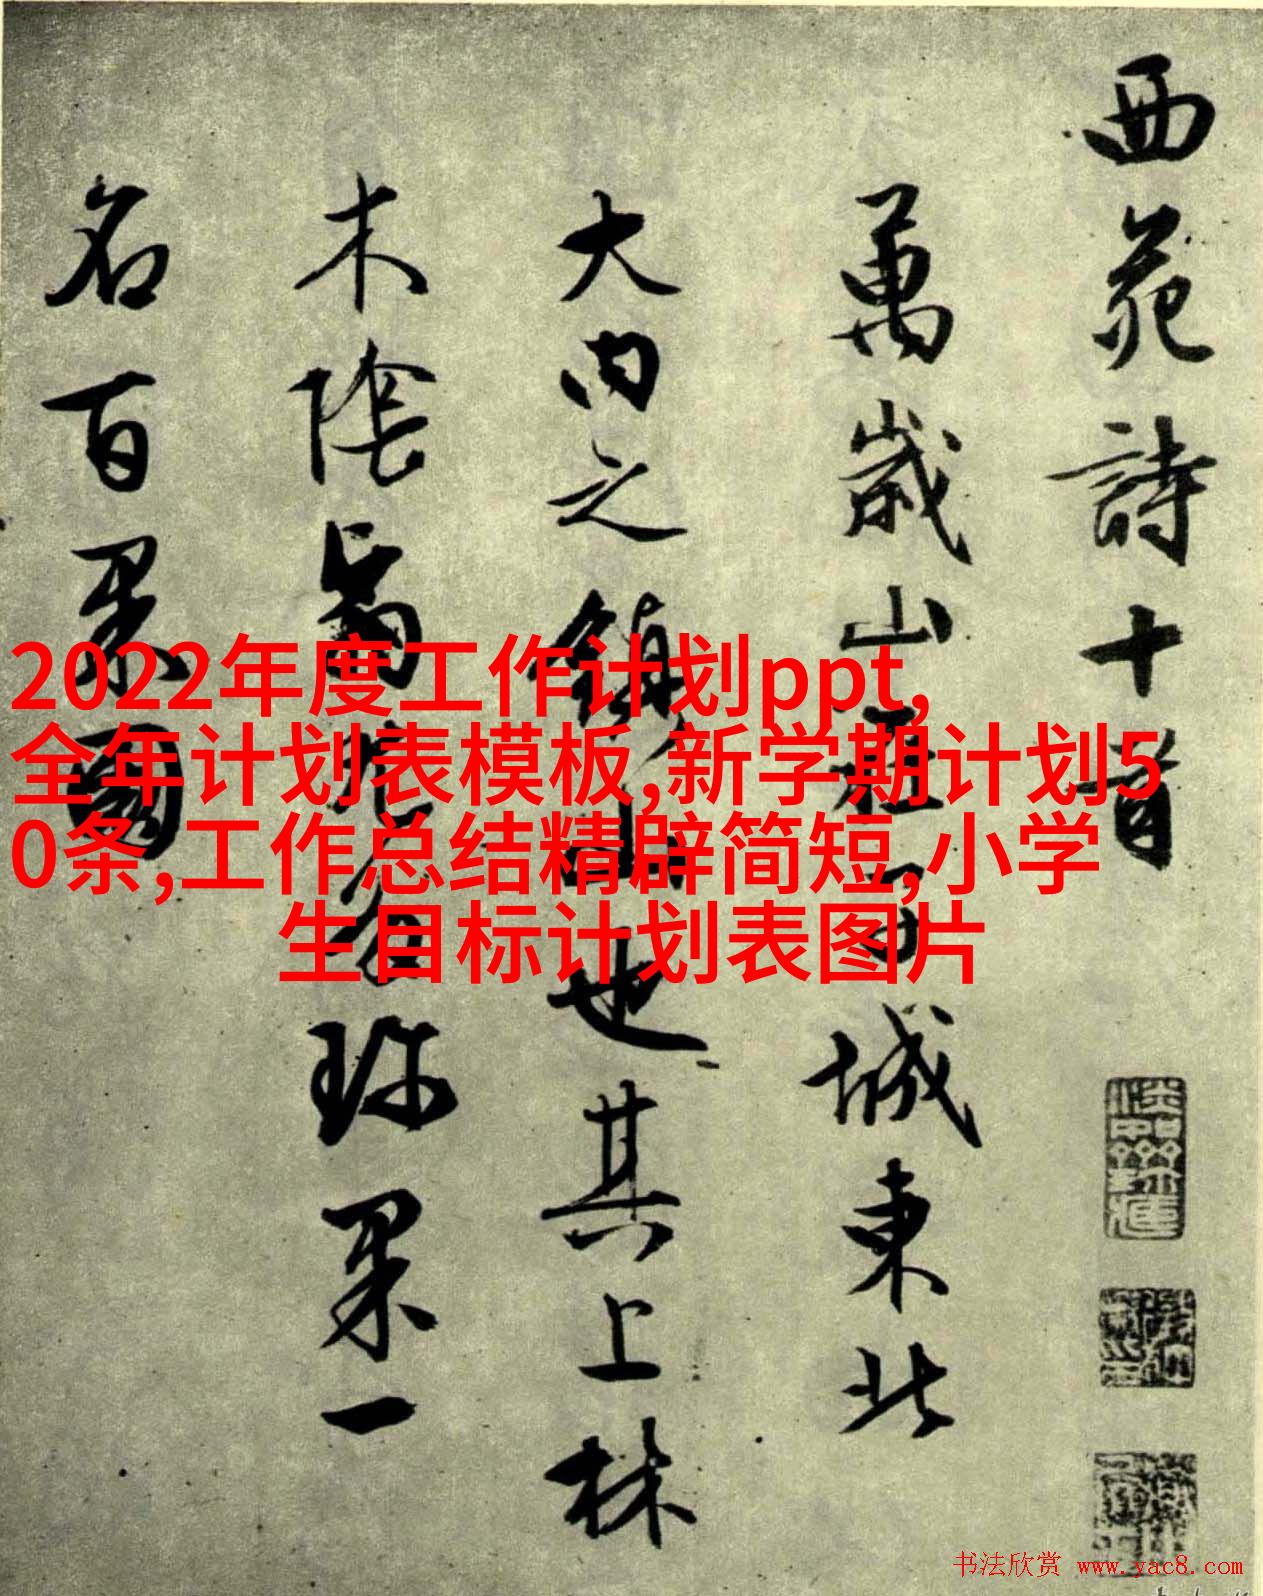 西苑詩十首
萬歲山在子城東北
大内之鎮山也其上林
木陰翳尤多珍果一
名百果園
2022年度工作计划ppt,
全年计划表模板,新学期计划5
0条,工作总结精辟简短,小学
生目标计划表图片
书法欣赏 www.yac8.com